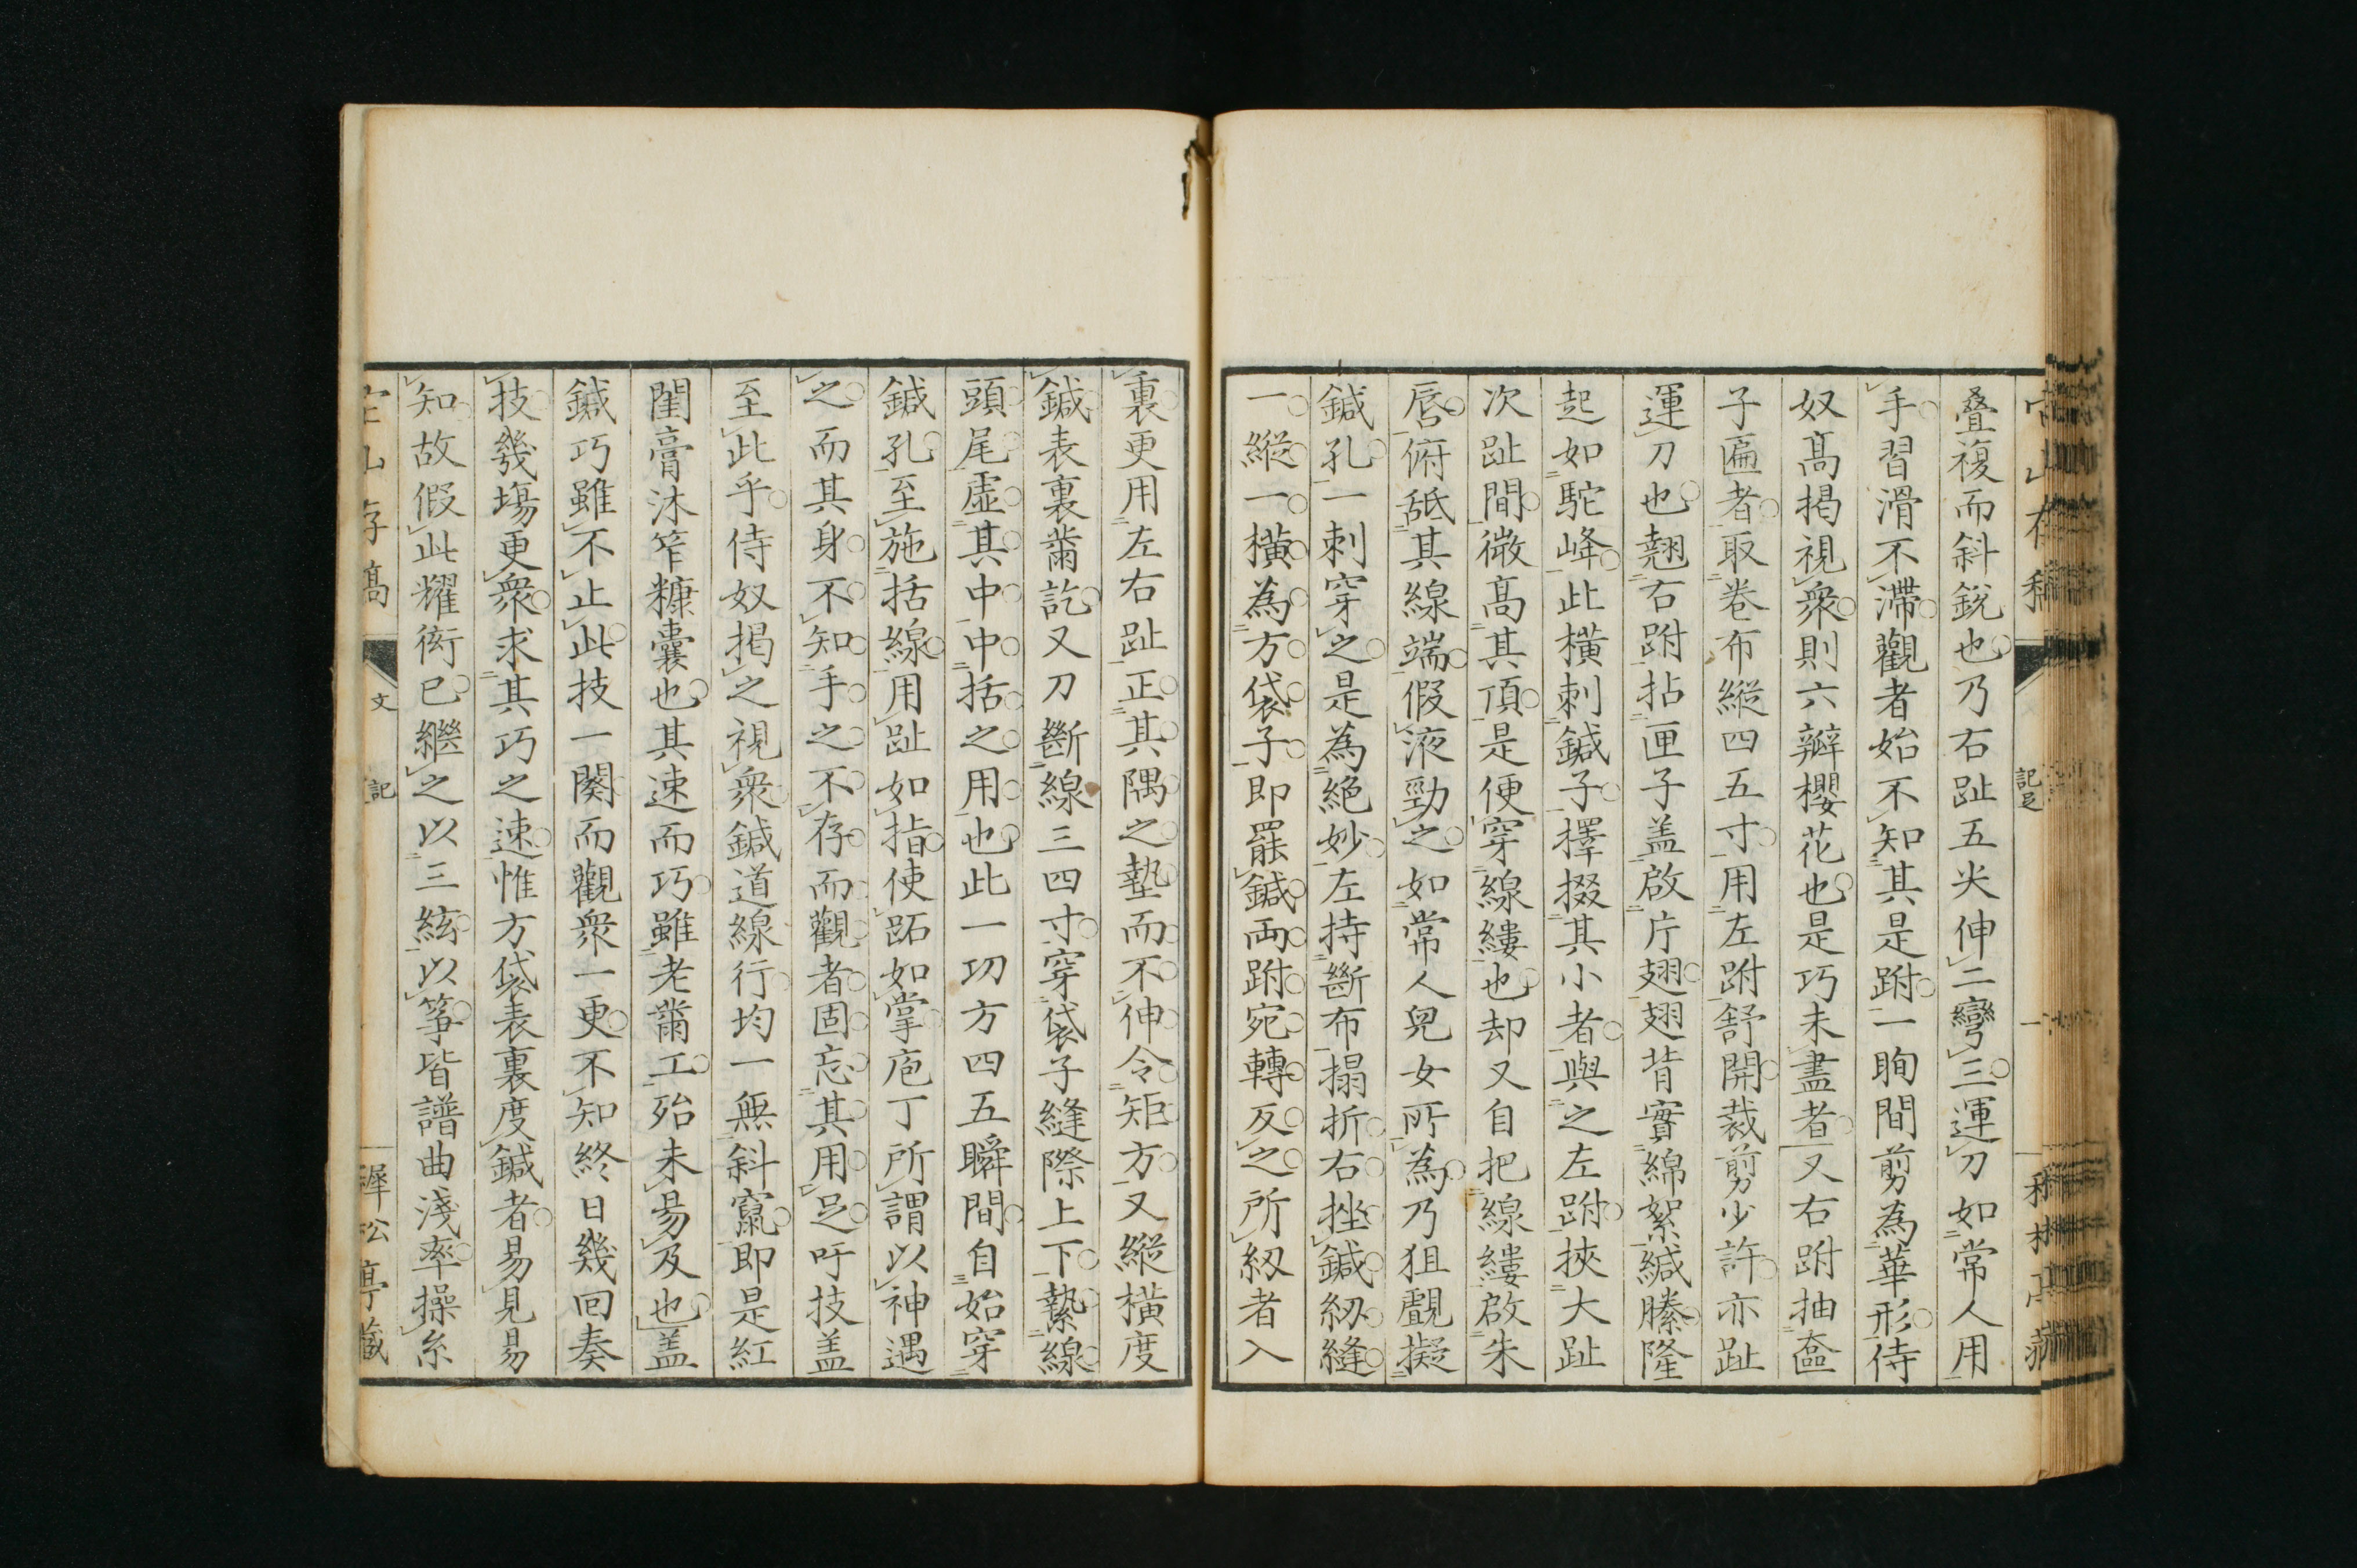 疊複而斜銳也乃右趾五尖伸二彎三運刀如常人用
手習滑不滯觀者始不知其是跗一眴間剪為華形侍
奴髙揭視衆則六瓣櫻花也是巧未盡者又右跗抽奩
子匾者取卷布縱四五寸用左跗舒開裁剪少許亦趾
運刀也翹右跗拈匣子盖啟片翅翅背實綿絮緘縢隆
起如駝峰此橫刺鍼子擇掇其小者與之左跗挾大趾
次趾間微髙其頂是便穿線縷也却又自把線縷啟朱
唇俯舐其線端假液勁之如常人兒女所為乃狙覷擬
鍼孔一刺穿之是為絕妙左持斷布搨折右挫鍼紉縫
一縱一橫為方袋子即罷鍼両跗宛轉反之所紉者入
裏更用左右趾正其隅之墊而不伸令矩方又縱橫度
鍼表裏黹訖又刀斷線三四寸穿袋子縫際上下縶線
頭尾虛其中中括之用也此一切方四五瞬間自始穿
鍼孔至施括線用趾如指使跖如掌庖丁所謂以神遇
之而其身不知手之不存而觀者固忘其用足吁技盖
至此乎侍奴揭之視衆鍼道線行均一無斜竄即是紅
閨膏沐笮糠囊也其速而巧雖老黹工殆未易及也盖
鍼巧雖不止此技一闋而觀衆一更不知終日幾回奏
技幾塲更衆求其巧之速惟方袋表裏度鍼者易見易
知故假此耀衒已繼之以三絃以箏皆譜曲淺率操糸
文
記
記足